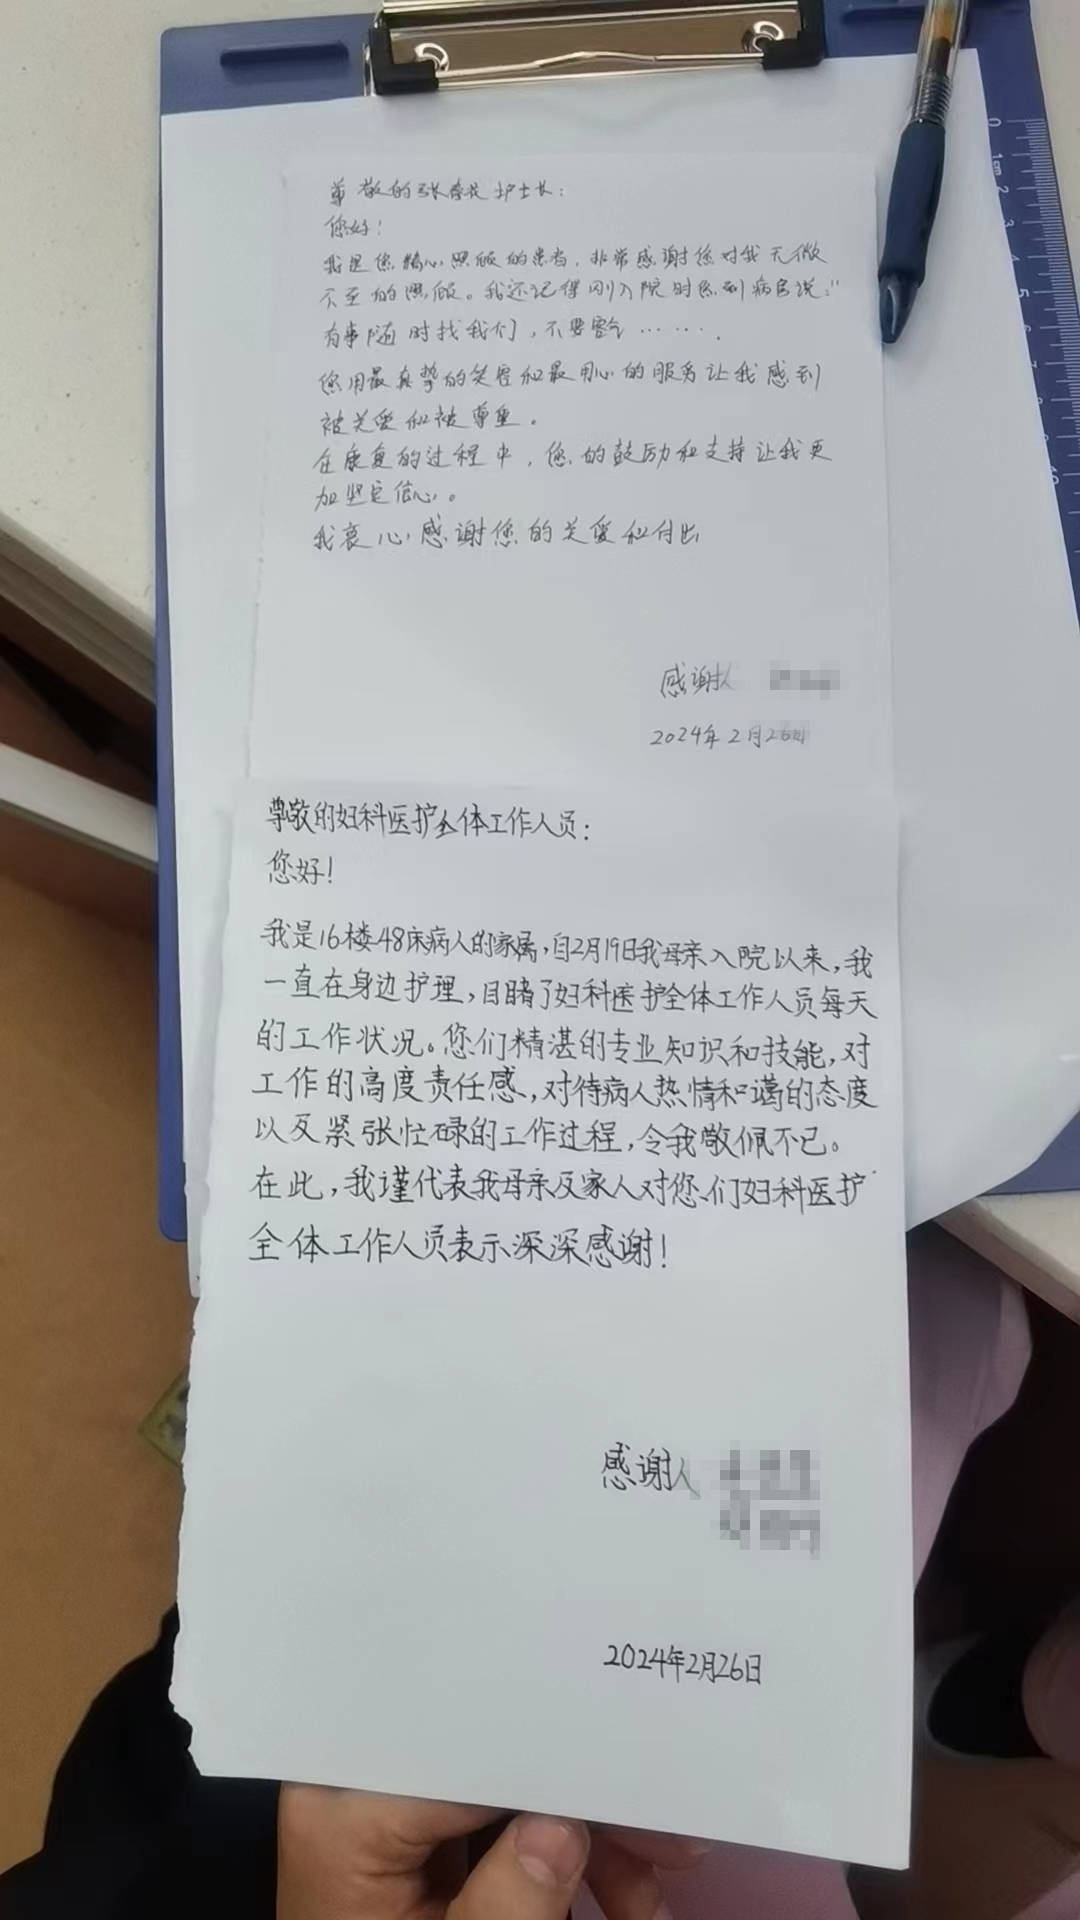 尊敬的张护士长：
您好！
我是您精心照顾的患者，非常感谢您对我无微
不至的照顾。我还记得刚入院时您到病房说："
有事随时找我们，不要客气……．
您用最真挚的笑容和最用心的服务让我感到
被关爱和被尊重。
在康复的过程中，您的鼓励和支持让我更
加坚定信心。
我衷心感谢您的关爱和付出
感谢人
2024年2月26日
尊敬的妇科医护全体工作人员：
您好！
我是16楼48床病人的家属，自2月19日我母亲入院以来，我
一直在身边护理，目睹了妇科医护全体工作人员每天
的工作状况。您们精湛的专业知识和技能，对
工作的高度责任感，对待病人热情和谒的态度
以及紧张忙碌的工作过程，令我敬佩不已。
在此，我谨代表我母亲及家人对您们妇科医护
全体工作人员表示深深感谢！
感谢人
2024年2月26日
0
1cm
2
3
4
5
10